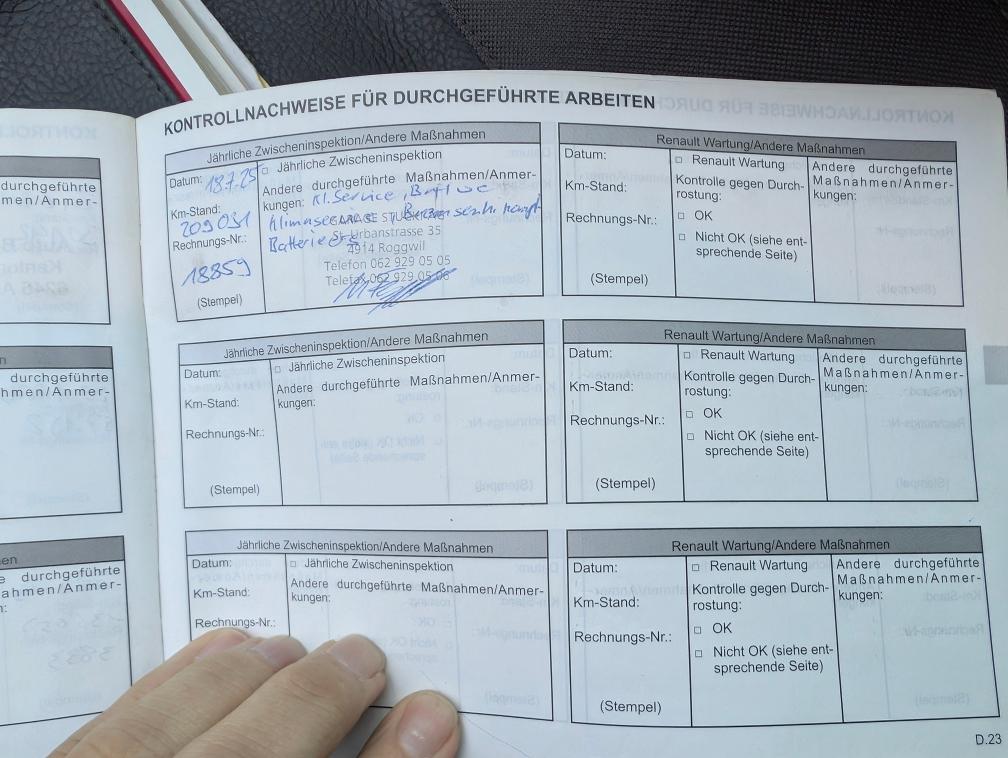 KONTROLLNACHWEISE FÜR DURCHGEFÜHRTE ARBEITEN
Jährliche Zwischeninspektion/Andere Maßnahmen
Datum: 18.7.25
Km-Stand:
209031
Rechnungs-Nr.:
18859
(Stempel)
□ Jährliche Zwischeninspektion
Andere durchgeführte Maßnahmen/Anmer-
kungen: Kl. Service,
Klimaservice,
Batterie
GARAGE
St. Urbanstrasse 35
4914 Roggwil
Telefon 062 929 05 05
Telefax 062 929 05 06
Renault Wartung/Andere Maßnahmen
Datum:
Km-Stand:
Rechnungs-Nr.:
(Stempel)
□ Renault Wartung
Kontrolle gegen Durch-
rostung:
□ OK
□ Nicht OK (siehe ent-
sprechende Seite)
Andere durchgeführte
Maßnahmen/Anmer-
kungen:
Jährliche Zwischeninspektion/Andere Maßnahmen
Datum:
Km-Stand:
Rechnungs-Nr.:
(Stempel)
□ Jährliche Zwischeninspektion
Andere durchgeführte Maßnahmen/Anmer-
kungen:
Renault Wartung/Andere Maßnahmen
Datum:
Km-Stand:
Rechnungs-Nr.:
(Stempel)
□ Renault Wartung
Kontrolle gegen Durch-
rostung:
□ OK
□ Nicht OK (siehe ent-
sprechende Seite)
Andere durchgeführte
Maßnahmen/Anmer-
kungen:
Jährliche Zwischeninspektion/Andere Maßnahmen
Datum:
Km-Stand:
Rechnungs-Nr.:
□ Jährliche Zwischeninspektion
Andere durchgeführte Maßnahmen/Anmer-
kungen:
Renault Wartung/Andere Maßnahmen
Datum:
Km-Stand:
Rechnungs-Nr.:
(Stempel)
□ Renault Wartung
Kontrolle gegen Durch-
rostung:
□ OK
□ Nicht OK (siehe ent-
sprechende Seite)
Andere durchgeführte
Maßnahmen/Anmer-
kungen:
D.23